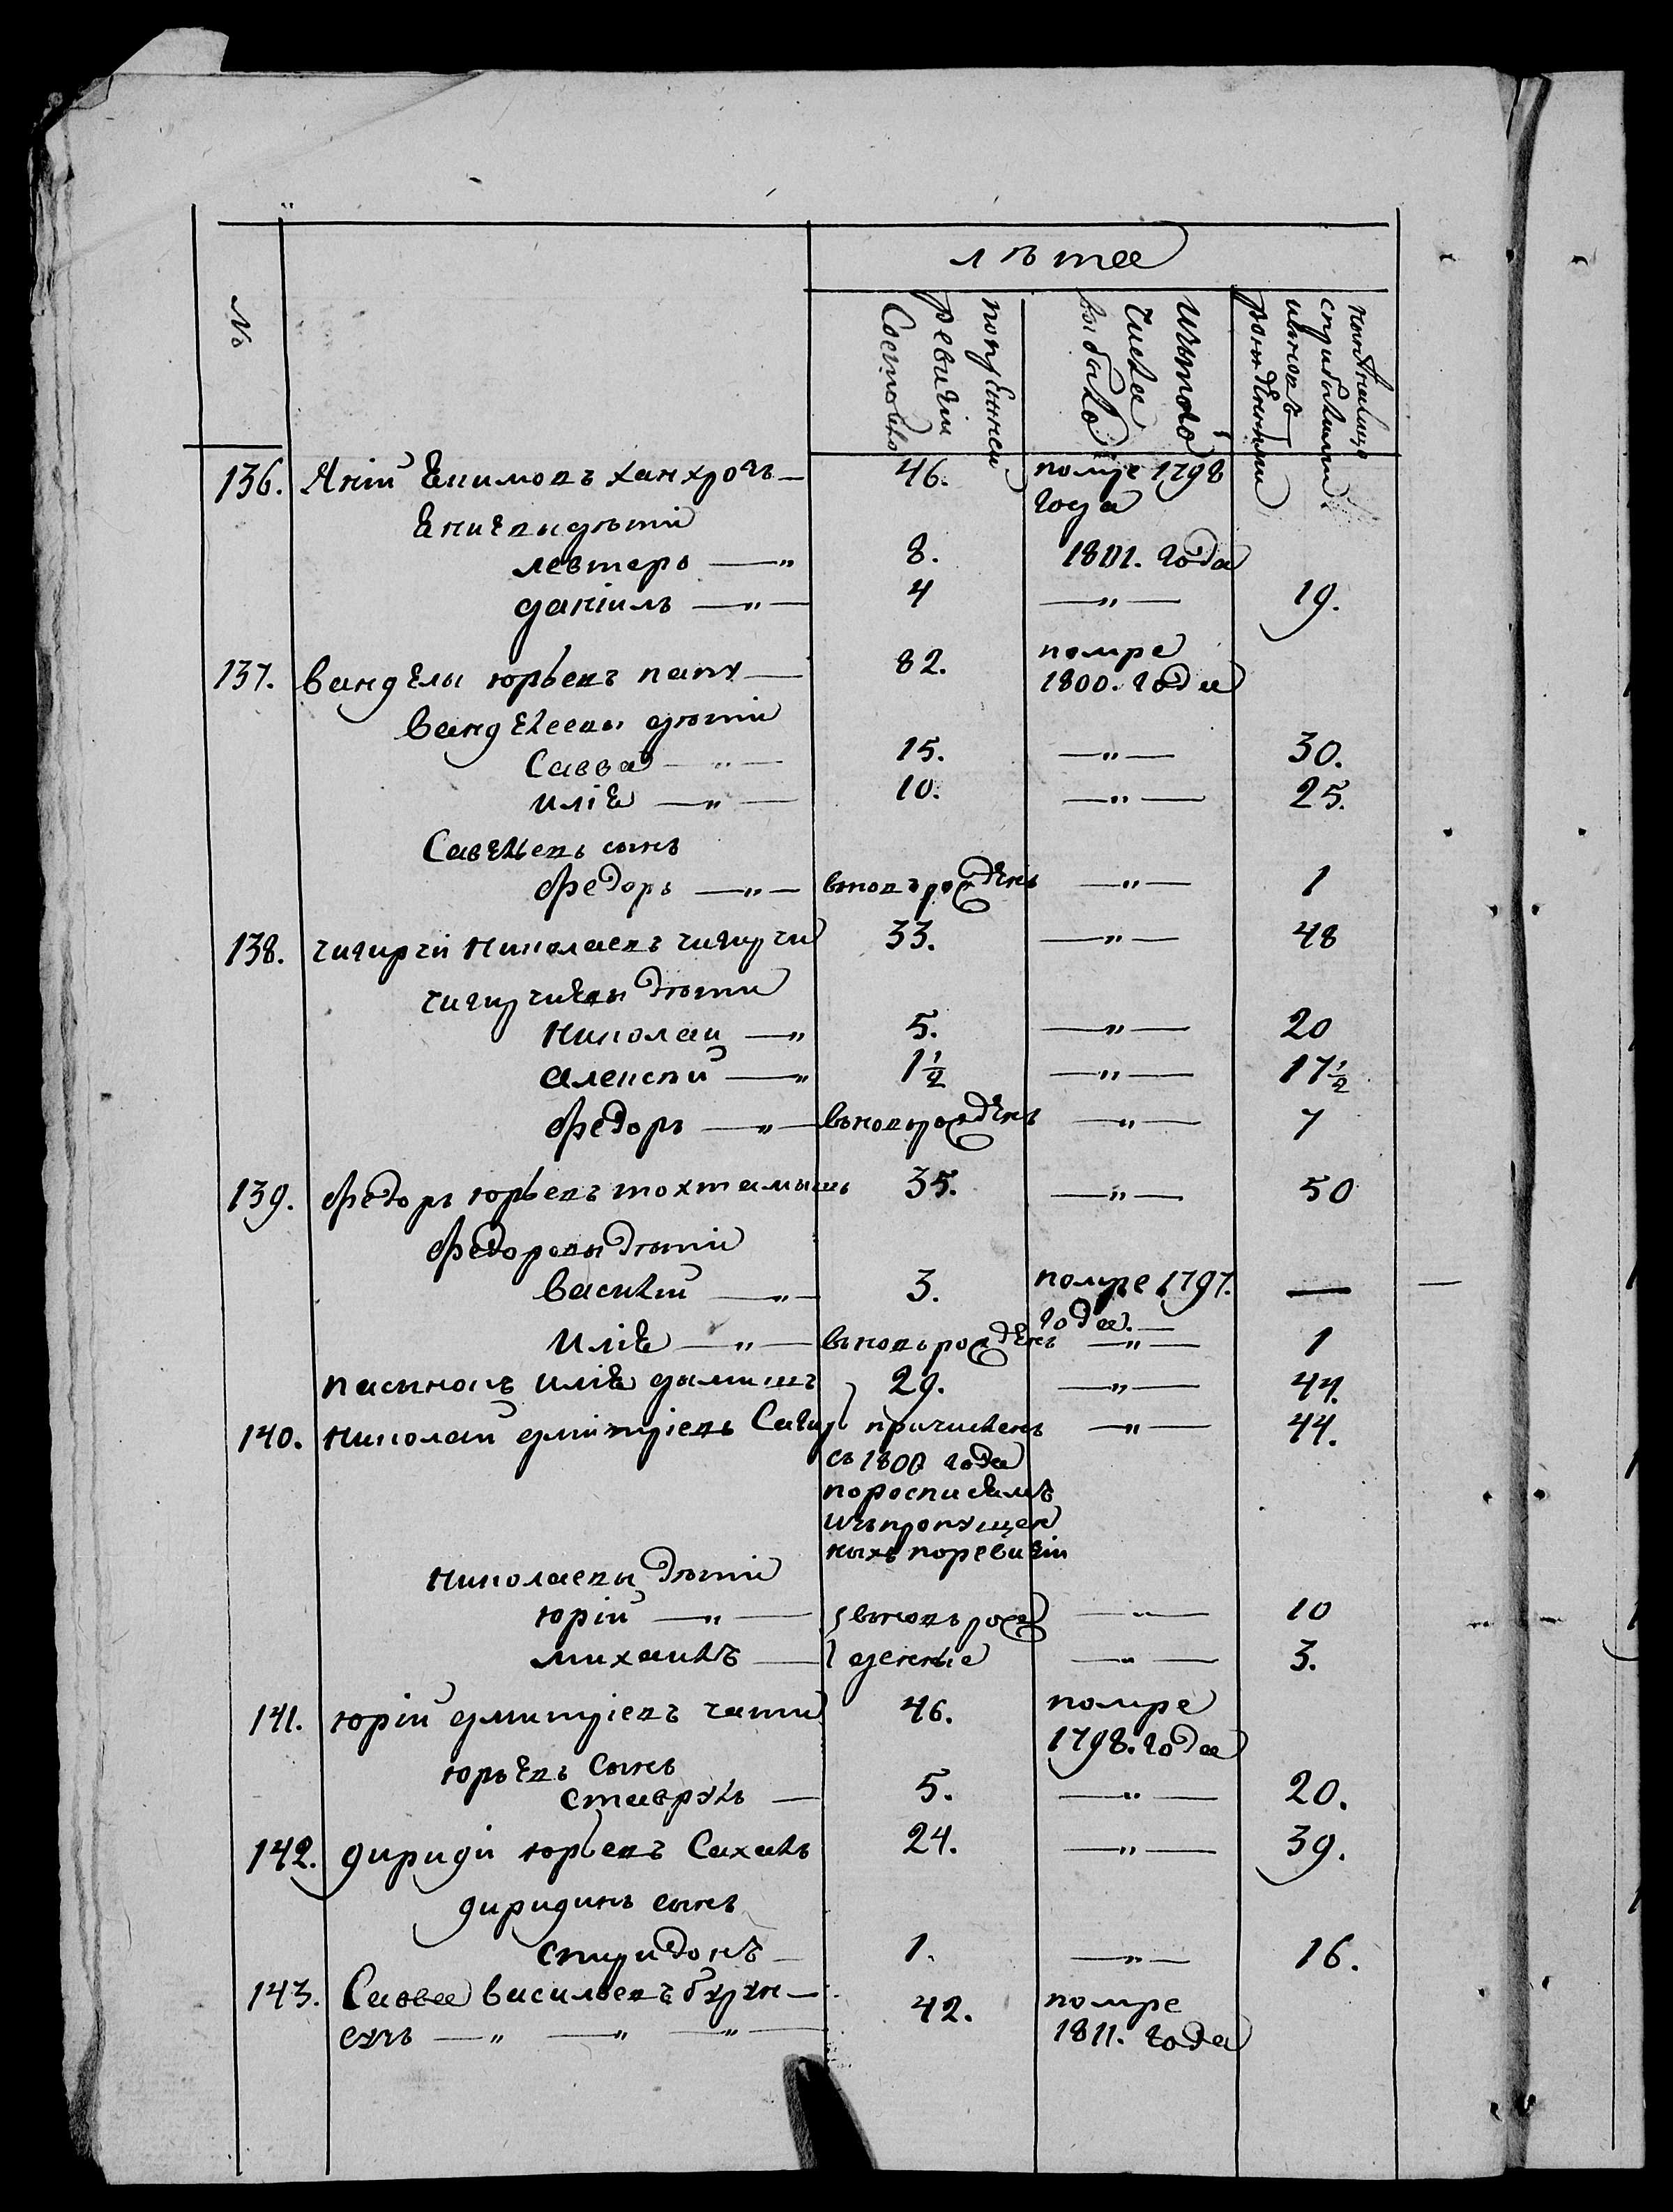 лѣта
№
попрежней
ревизіи
Состояло
изтого
Числа
выбыло
136. Яній Екимовъ ханхрогъ — 46. помре 1798
года
Яніевы дѣти
левтеръ — „ 8. 1801. года
даніилъ — „ — 4 — „ — 19.
137. Вандели юрьевъ папу — 82. помре
1800. года
Ванделеевы дѣти
Савва — „ — 15. — „ — 30.
иліа — „ — 10. — „ — 25.
Савельевъ сынъ
Федоръ — „ — вновь рожденъ — „ — 1
138. чигирчи николаевъ чигирчи 33. — „ — 48
чигирчиевы дѣти
николай — „ 5. — „ — 20
алексѣй — „ 1½ — „ — 17½
Федоръ — „ — вновь рожденъ — „ — 7
139. Федоръ юрьевъ тохтамышъ 35. — „ — 50
Федоровы дѣти
Василій — „ — 3. помре 1797. —
года. —
иліа — „ — вновь рожденъ — „ — 1
пасынокъ иліа 29. — „ — 44.
140. николай дмитріевъ причисленъ — „ — 44.
съ 1800 года
поросписямъ
изъпропущен
ныхъ поревизіи
николаевы дѣти
юрій — „ — вновь рож — „ — 10
михаилъ — денные — „ — 3.
141. юрій дмитріевъ чапни 46. помре
1798. года
юрьевъ Сынъ
ставрулъ — 5. — „ — 20.
142. дириди юрьевъ Сахалъ 24. — „ — 39.
диридинъ сынъ
спиридонъ — 1. — „ — 16.
143. Савва васильевъ 42. помре
— „ — „ — „ — 1811. года